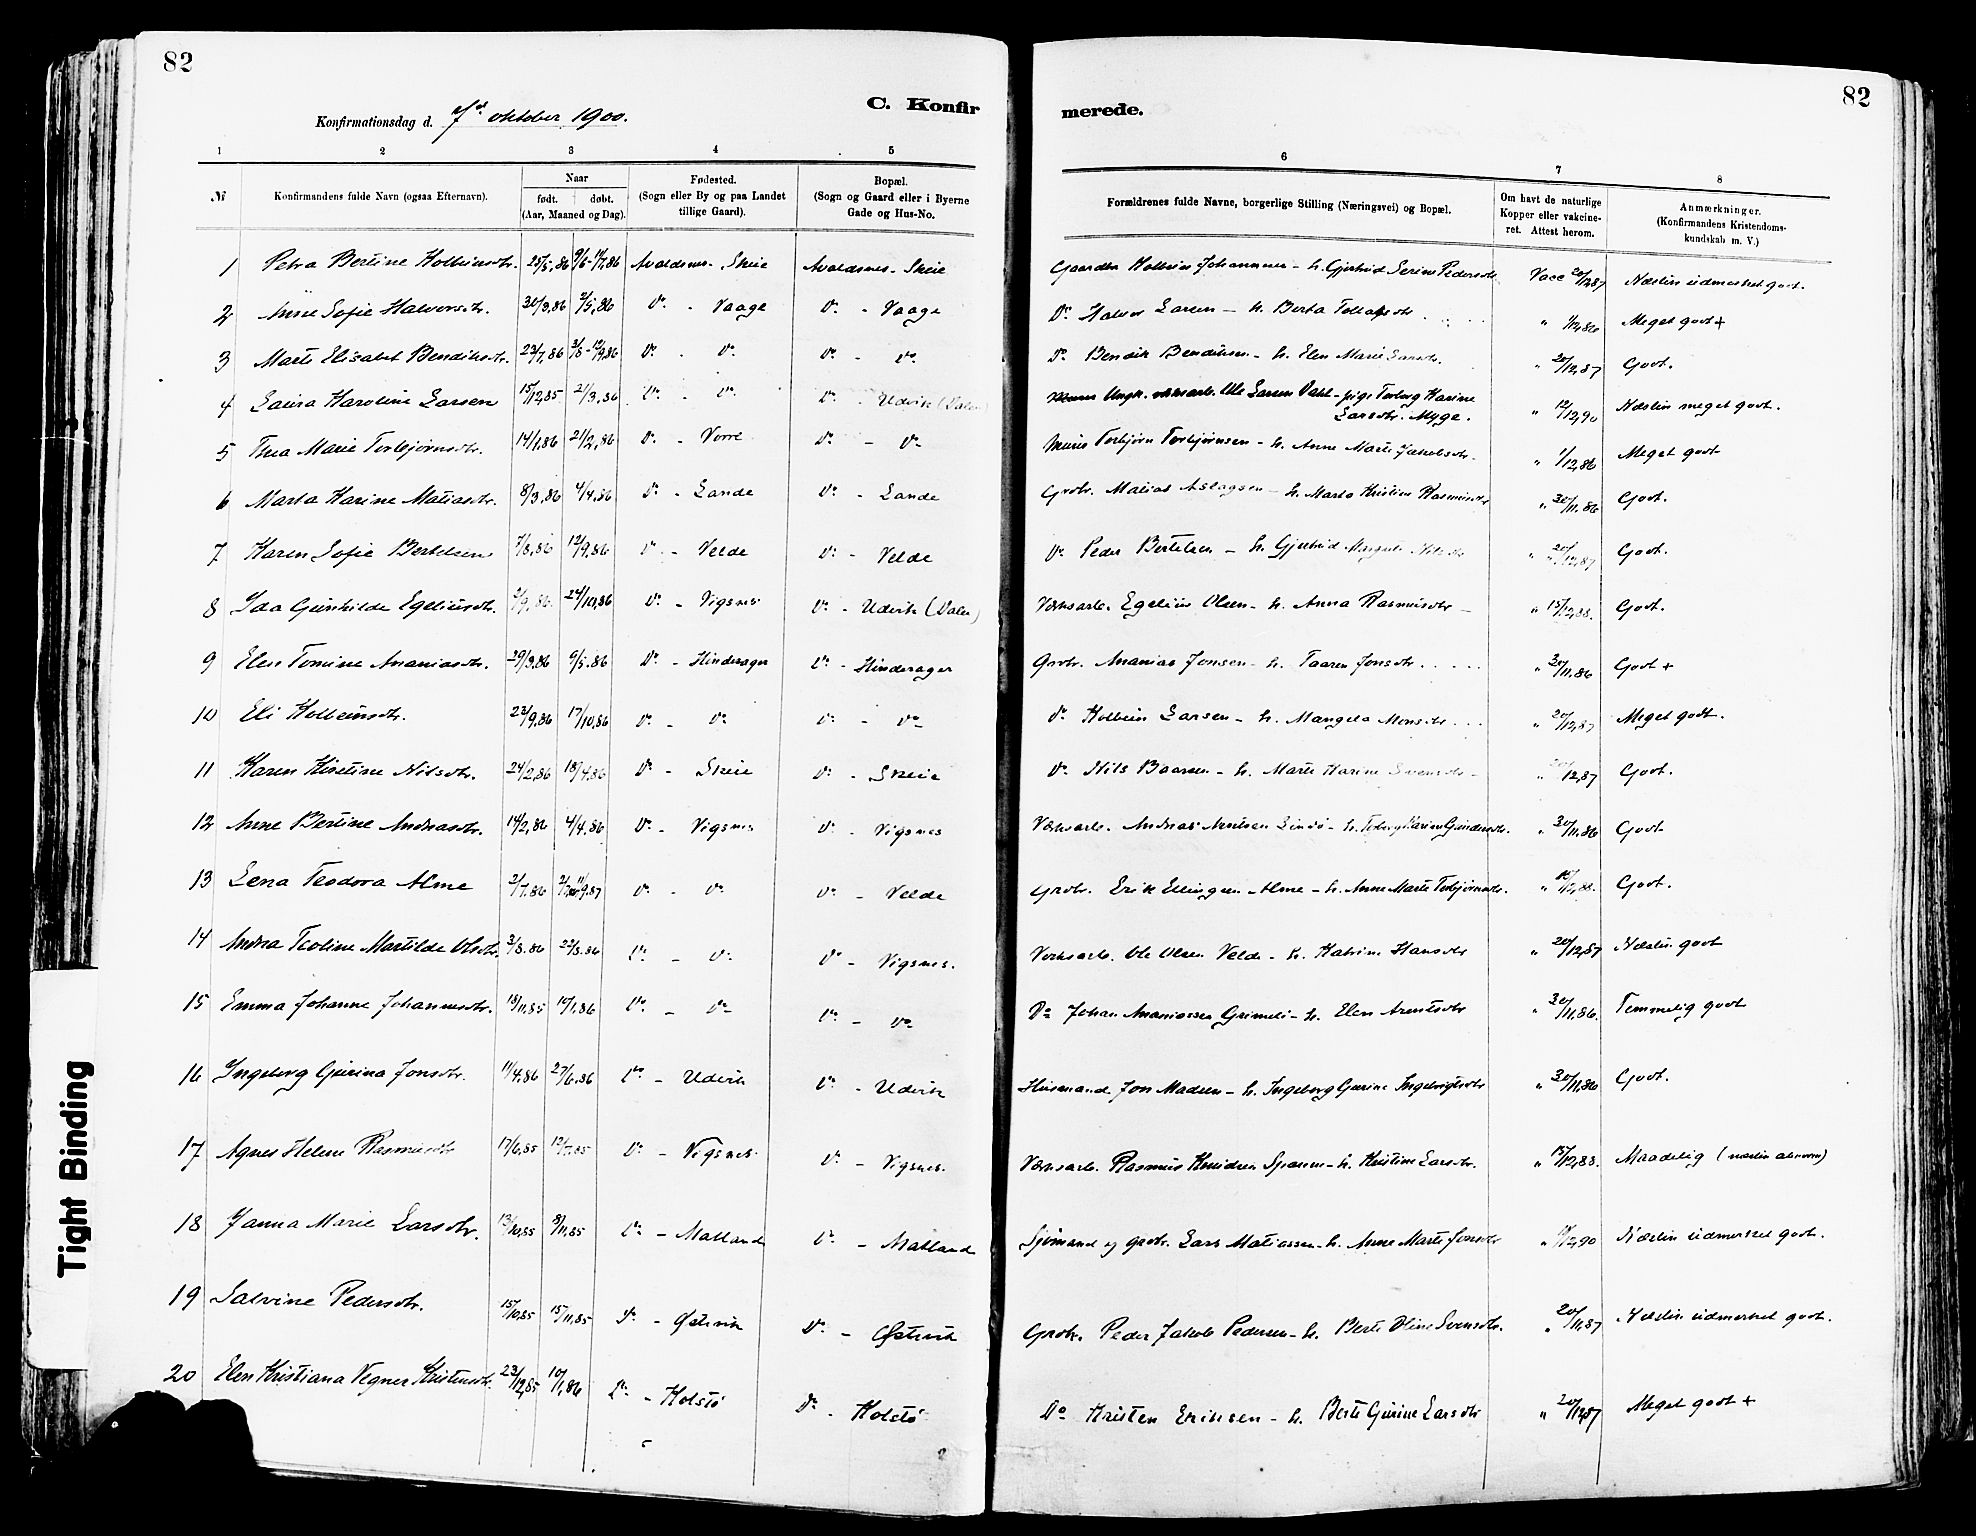 82
C. Konfir
merede.
82
Konfirmationsdag d. 7de oktober 1900.
1 2 3 4 5 6 7 8
№ Konfirmandens fulde Navn (ogsaa Efternavn). Naar født. døbt. (Aar, Maaned og Dag). Fødested. (Sogn eller By og paa Landet tillige Gaard). Bopæl. (Sogn og Gaard eller i Byerne Gade og Hus-No. Forældrenes fulde Navne, borgerlige Stilling (Næringsvei) og Bopæl. Om havt de naturlige Kopper eller vakcineret. Attest herom. Anmærkninger. (Konfirmandens Kristendomskundskab m. V.)
1 Petra Bertine Kolbeinsdtr. 25/5,86 9/6-11/7,86 Avaldsnes - Skeie Avaldsnes - Skeie Gaardbr Kolbein Johannesen - h. Gjertrud Serine Pedersdtr Vacc 20/12,87 Næsten udmerket godt.
2 Anne Sofie Halvorsdtr. 30/3,86 2/5,86 Do - Vaage Do - Vaage Do Halvor Larsen - h. Berta " 1/12,86 Meget godt +
3 Marte Elisabet Bendiksdtr. 23/7,86 Do - Do Do - Do Do Bendik Bendiksen - h. Elen Marie Larsdtr. " 20/12,87 Godt.
4 Laura Karoline Larsen 15/12,85 21/3,86 Do - Do Do - Udvik Ungk. verksarb. Ole Larsen Dahl - pige Torborg Karine
Larsdtr. Myge. " 12/12,90 Næsten meget godt.
5 Thea Marie Torbjørnsdtr. 14/1,86 21/2,86 Do - Vorre Do - Do Murer Torbjørn Torbjørnsen - h. Anne Marte Jakobsdtr. " 1/12,86 Meget godt
6 Marta Karine Matiasdtr 8/3,86 4/4,86 Do - Lande Do - Lande Grdbr. Matias Aslagsen - h. Marta Kristine Rasmusdtr " 30/11,86 Godt.
7 Karen Sofie Bertelsen 7/8,86 12/9,86 Do - Velde Do - Velde Do Peder Bertelsen - h. Gjertrud " 20/12,87 Godt.
8 Ida Gunhilde Egeliusdtr. 2/9,86. 24/10,86 Do - Vigsnes Do - Udvik (Dalen) Verksarb. Egelius Olsen - h. Anna Rasmusdtr " 15/12,88. Godt.
9 Elen Tomine Ananiasdtr. 29/3,86 9/5,86 Do - Hinderager Do - Hinderager Grdbr. Ananias Jonsen - h. Taaren Jonsdtr " 30/11,86 Godt +
10 Eli Kolbeinsdtr. 22/9,86 17/10,86 Do - Do Do - Do Do Kolbein Larsen - h. Mangela Monsdtr " 20/12,87 Meget godt.
11 Karen Kristine Nilsdtr. 24/2,86 18/4,86 Do - Skeie Do - Skeie Do Nils Baarsen - h. Marte Karine Svensdtr " 20/12,87 Godt.
12 Anne Bertine Andreasdtr. 14/2,86 4/4,86 Do - Vigsnes Do - Vigsnes Verksarb. Andreas h. Torborg Karine Gundersdtr. " 30/11,86 Godt
13 Lena Teodora Alme 2/7,86 Do - Do Do - Velde Grdbr. Erik Ellingsen Alme - h. Anne Marte Torbjørnsdtr. " 10/12,88. Godt.
14 Andrea Teoline Martilde Olsdtr. 3/8.86 22/8.86 Do - Do Do - Vigsnes. Verksarb. Ole Olsen Velde - h. Katrine Hansdtr " 20/12,87 Næsten godt
15 Emma Johanne Johannesdtr. 18/11,85 10/1,86 Do - Do Do - Do Do Johan Ananiassen Grimeli - h. Elen Arentsdtr " 30/11,86. Temmelig godt
16 Ingeborg Gurina Jonsdtr. 11/4,86 27/6,86 Do - Udvik Do - Udvik Husmand Jon Madsen - h. Ingeborg Gurine Ingebrigtsdtr " 30/11,86 Godt.
17 Agnes Helene Rasmusdtr 17/6,85 12/7,85 Do - Vigsnes. Do - Vigsnes. Verksarb. Rasmus Knudsen h. Kristine Larsdtr. " 15/12,88. Maadelig
18 Janna Marie Larsdtr. 13/10,85 8/11,85 Do - Matland Do - Matland Sjømand og grdbr. Lars Matiassen - h. Anne Marte Jonsdtr " 12,90 Næsten udmerket godt.
19 Salvine Pedersdtr. 15/10,85 15/11,85 Do - Østvik Do - Østvik Grdbr. Peder Jakob Pedersen - h. Berte Oline Svensdtr. " 20/11,87 Næsten udmerket godt.
20 Elen Kristiana Vegner Kristensdtr. 23/12,85 10/1,86 Do - Kolstø Do - Kolstø Do Kristen Eriksen - h. Berte Gurine Larsdtr " 20/12,87 Meget godt +
Tight Binding